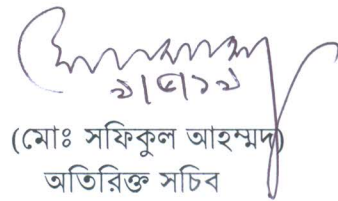 (মোঃ সফিকুল আহম্মদ)
অতিরিক্ত সচিব